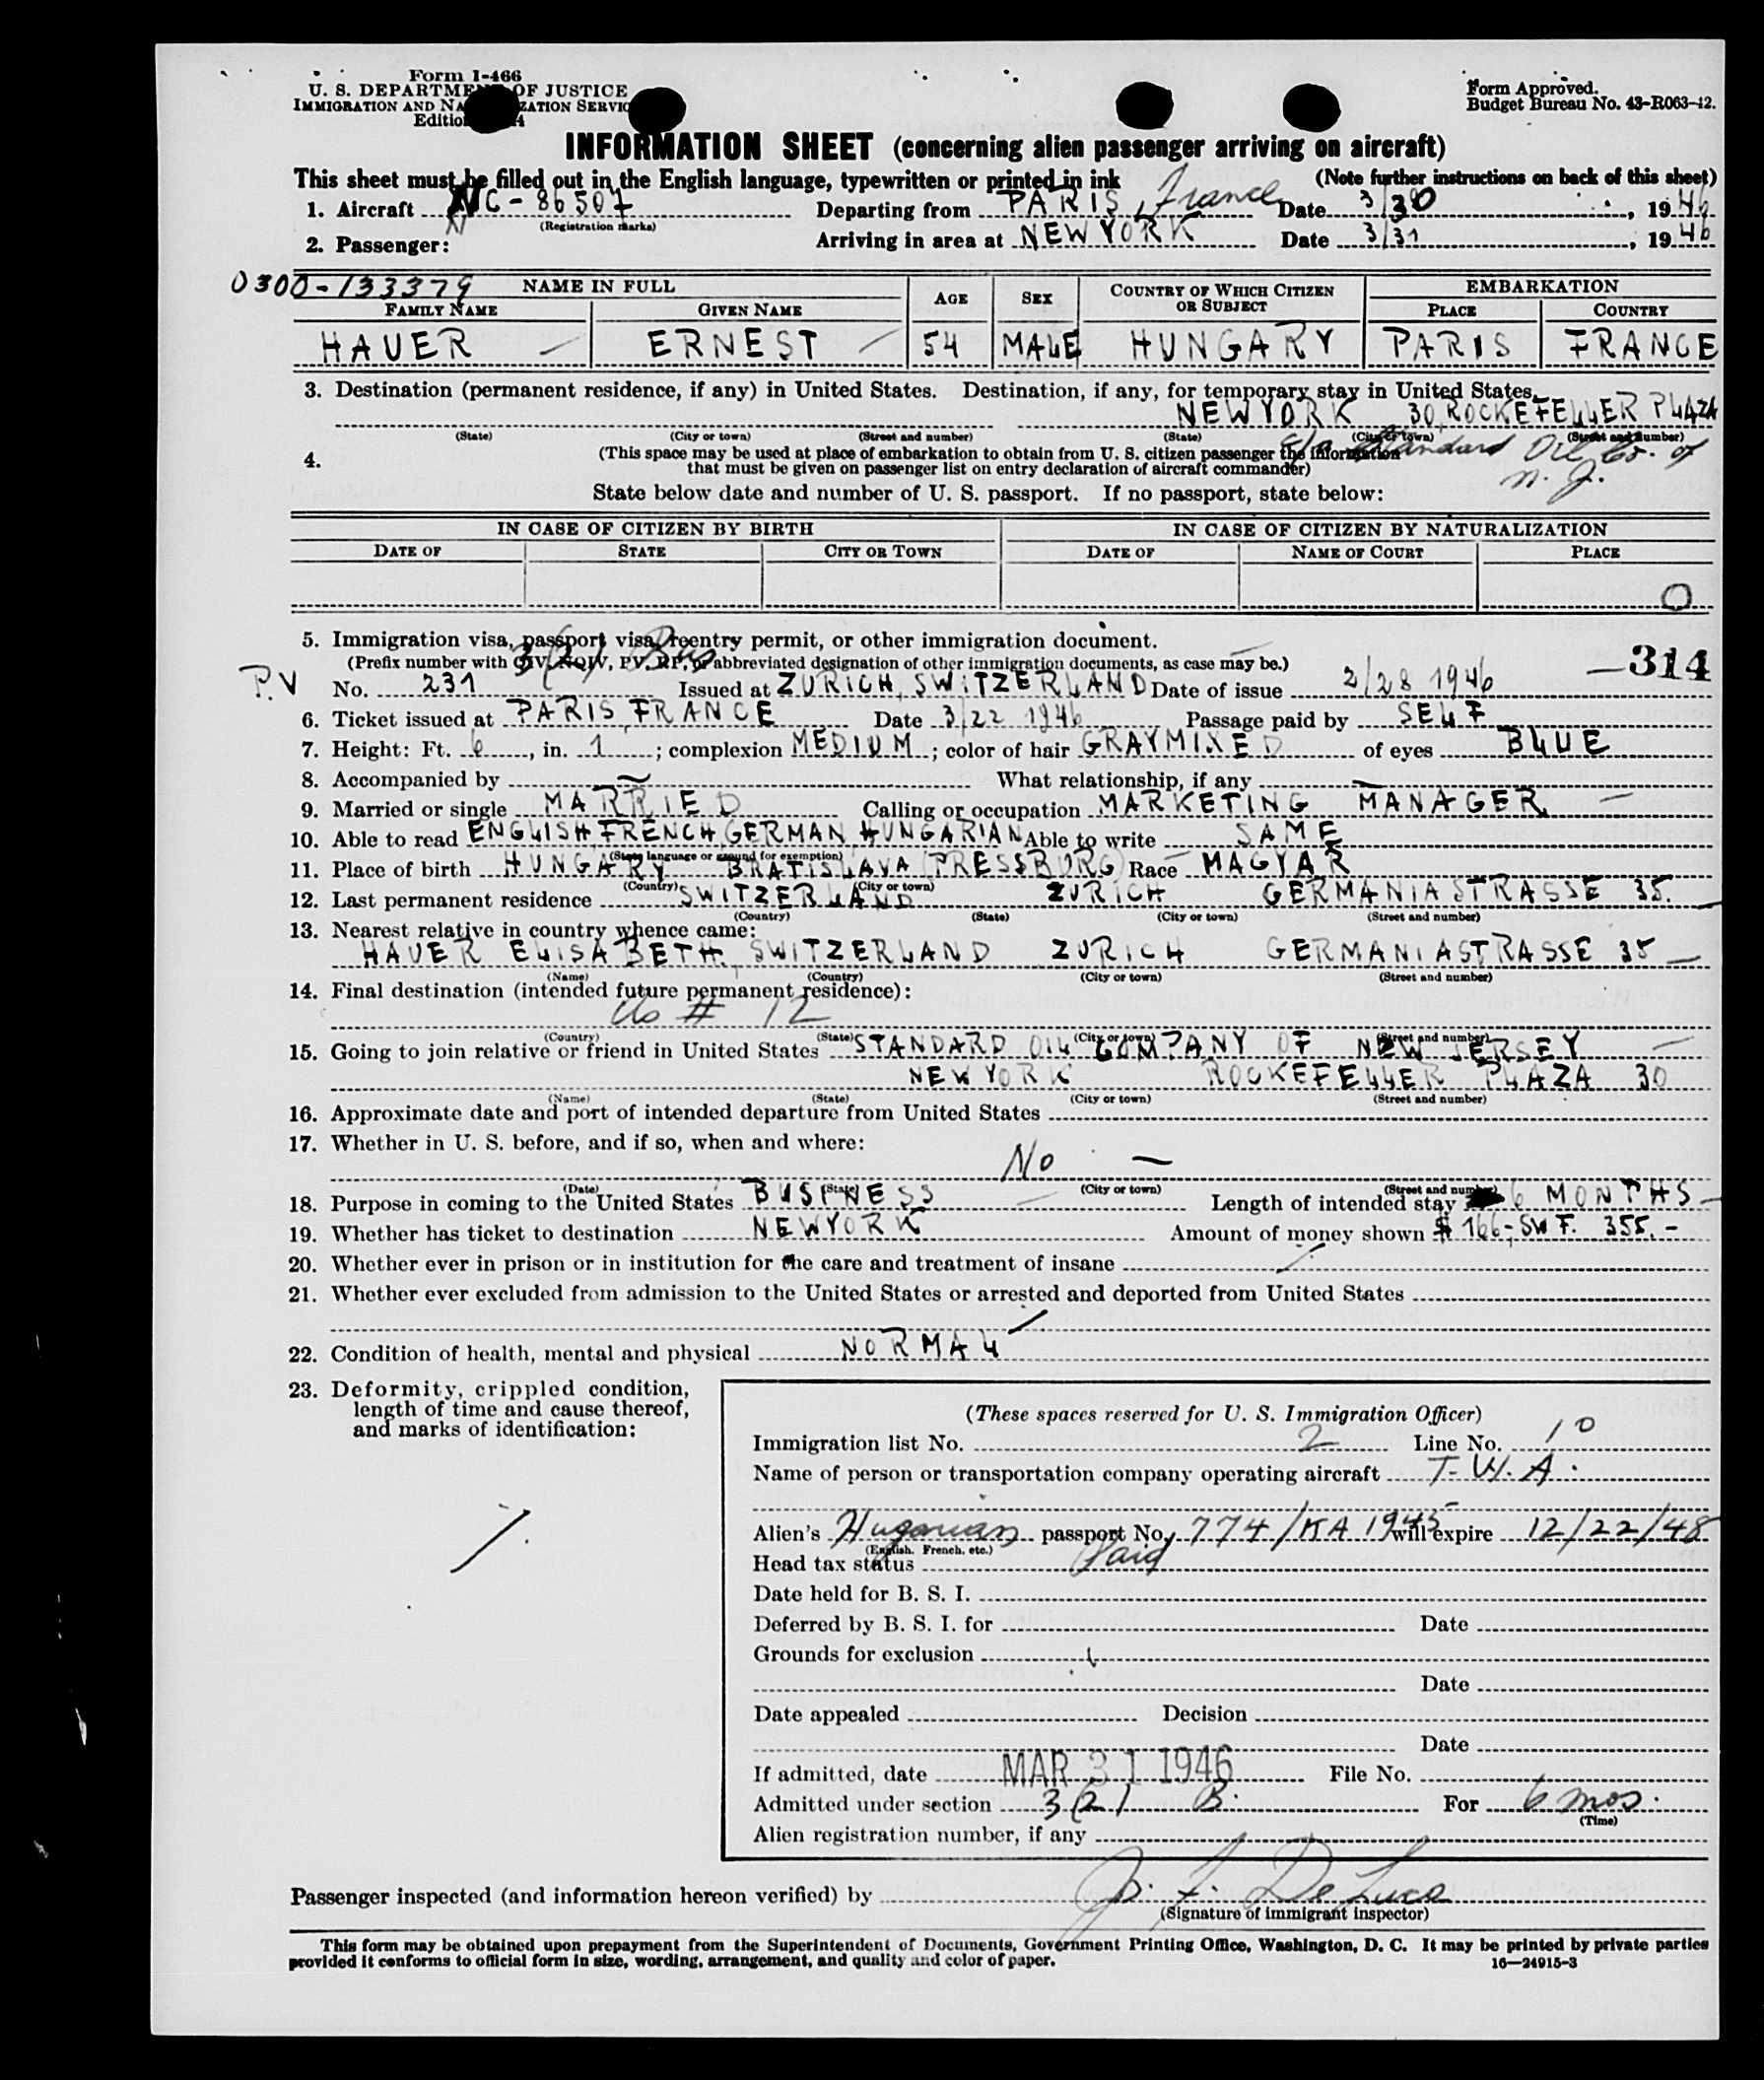 Form I-466
U. S. DEPARTMENT OF JUSTICE
IMMIGRATION AND NATURALIZATION SERVICE
Form Approved.
Budget Bureau No. 43-R063-42.
INFORMATION SHEET (concerning alien passenger arriving on aircraft)
This sheet must be filled out in the English language, typewritten or printed in ink (Note further instructions on back of this sheet)
1. Aircraft NC-86507 Departing from PARIS, France Date 3/30, 1946
(Registration marks)
2. Passenger: Arriving in area at NEW YORK Date 3/31, 1946
0300-133379 NAME IN FULL AGE SEX COUNTRY OF WHICH CITIZEN OR SUBJECT EMBARKATION
FAMILY NAME GIVEN NAME PLACE COUNTRY
HAUER ERNEST 54 MALE HUNGARY PARIS FRANCE
3. Destination (permanent residence, if any) in United States. Destination, if any, for temporary stay in United States.
NEW YORK 30, ROCKEFELLER PLAZA
(State) (City or town) (Street and number) (State) (City or town) (Street and number)
c/o Standard Oil Co. of N. J.
4. (This space may be used at place of embarkation to obtain from U. S. citizen passenger the information
that must be given on passenger list on entry declaration of aircraft commander)
State below date and number of U. S. passport. If no passport, state below:
IN CASE OF CITIZEN BY BIRTH IN CASE OF CITIZEN BY NATURALIZATION
DATE OF STATE CITY OR TOWN DATE OF NAME OF COURT PLACE
O
5. Immigration visa, passport visa, reentry permit, or other immigration document.
3(2) Bus
(Prefix number with QIV, NQIV, PV, RP, or abbreviated designation of other immigration documents, as case may be.) —314
P.V No. 231 Issued at ZURICH, SWITZERLAND Date of issue 2/28 1946
6. Ticket issued at PARIS, FRANCE Date 3/22 1946 Passage paid by SELF
7. Height: Ft. 6, in. 1; complexion MEDIUM; color of hair GRAYMIXED of eyes BLUE
8. Accompanied by — What relationship, if any —
9. Married or single MARRIED Calling or occupation MARKETING MANAGER —
10. Able to read ENGLISH, FRENCH, GERMAN, HUNGARIAN Able to write SAME
(State language or ground for exemption)
11. Place of birth HUNGARY BRATISLAVA (PRESSBURG) Race MAGYAR
(Country) (City or town)
12. Last permanent residence SWITZERLAND ZURICH GERMANIASTRASSE 35.
(Country) (State) (City or town) (Street and number)
13. Nearest relative in country whence came:
HAUER ELISABETH, SWITZERLAND ZURICH GERMANIASTRASSE 35 —
(Name) (Country) (City or town) (Street and number)
14. Final destination (intended future permanent residence):
As # 12
(Country) (State) (City or town) (Street and number)
15. Going to join relative or friend in United States STANDARD OIL COMPANY OF NEW JERSEY —
NEW YORK ROCKEFELLER PLAZA 30
(Name) (State) (City or town) (Street and number)
16. Approximate date and port of intended departure from United States
17. Whether in U. S. before, and if so, when and where:
No —
(Date) (State) (City or town) (Street and number)
18. Purpose in coming to the United States BUSINESS — Length of intended stay 6 MONTHS —
19. Whether has ticket to destination NEW YORK Amount of money shown $ 166,- SW F. 355.-
20. Whether ever in prison or in institution for the care and treatment of insane
21. Whether ever excluded from admission to the United States or arrested and deported from United States
22. Condition of health, mental and physical NORMAL
23. Deformity, crippled condition,
length of time and cause thereof,
and marks of identification:
(These spaces reserved for U. S. Immigration Officer)
Immigration list No. 2 Line No. 10
Name of person or transportation company operating aircraft T.W.A.
Alien's Hugarian passport No. 774/KA 1945 will expire 12/22/48
(English, French, etc.)
Head tax status Paid
Date held for B. S. I.
Deferred by B. S. I. for Date
Grounds for exclusion
Date
Date appealed Decision
Date
If admitted, date MAR 31 1946 File No.
Admitted under section 3(2) B. For 6 mos.
(Time)
Alien registration number, if any
Passenger inspected (and information hereon verified) by De Luca
(Signature of immigrant inspector)
This form may be obtained upon prepayment from the Superintendent of Documents, Government Printing Office, Washington, D. C. It may be printed by private parties
provided it conforms to official form in size, wording, arrangement, and quality and color of paper. 16—24915-3